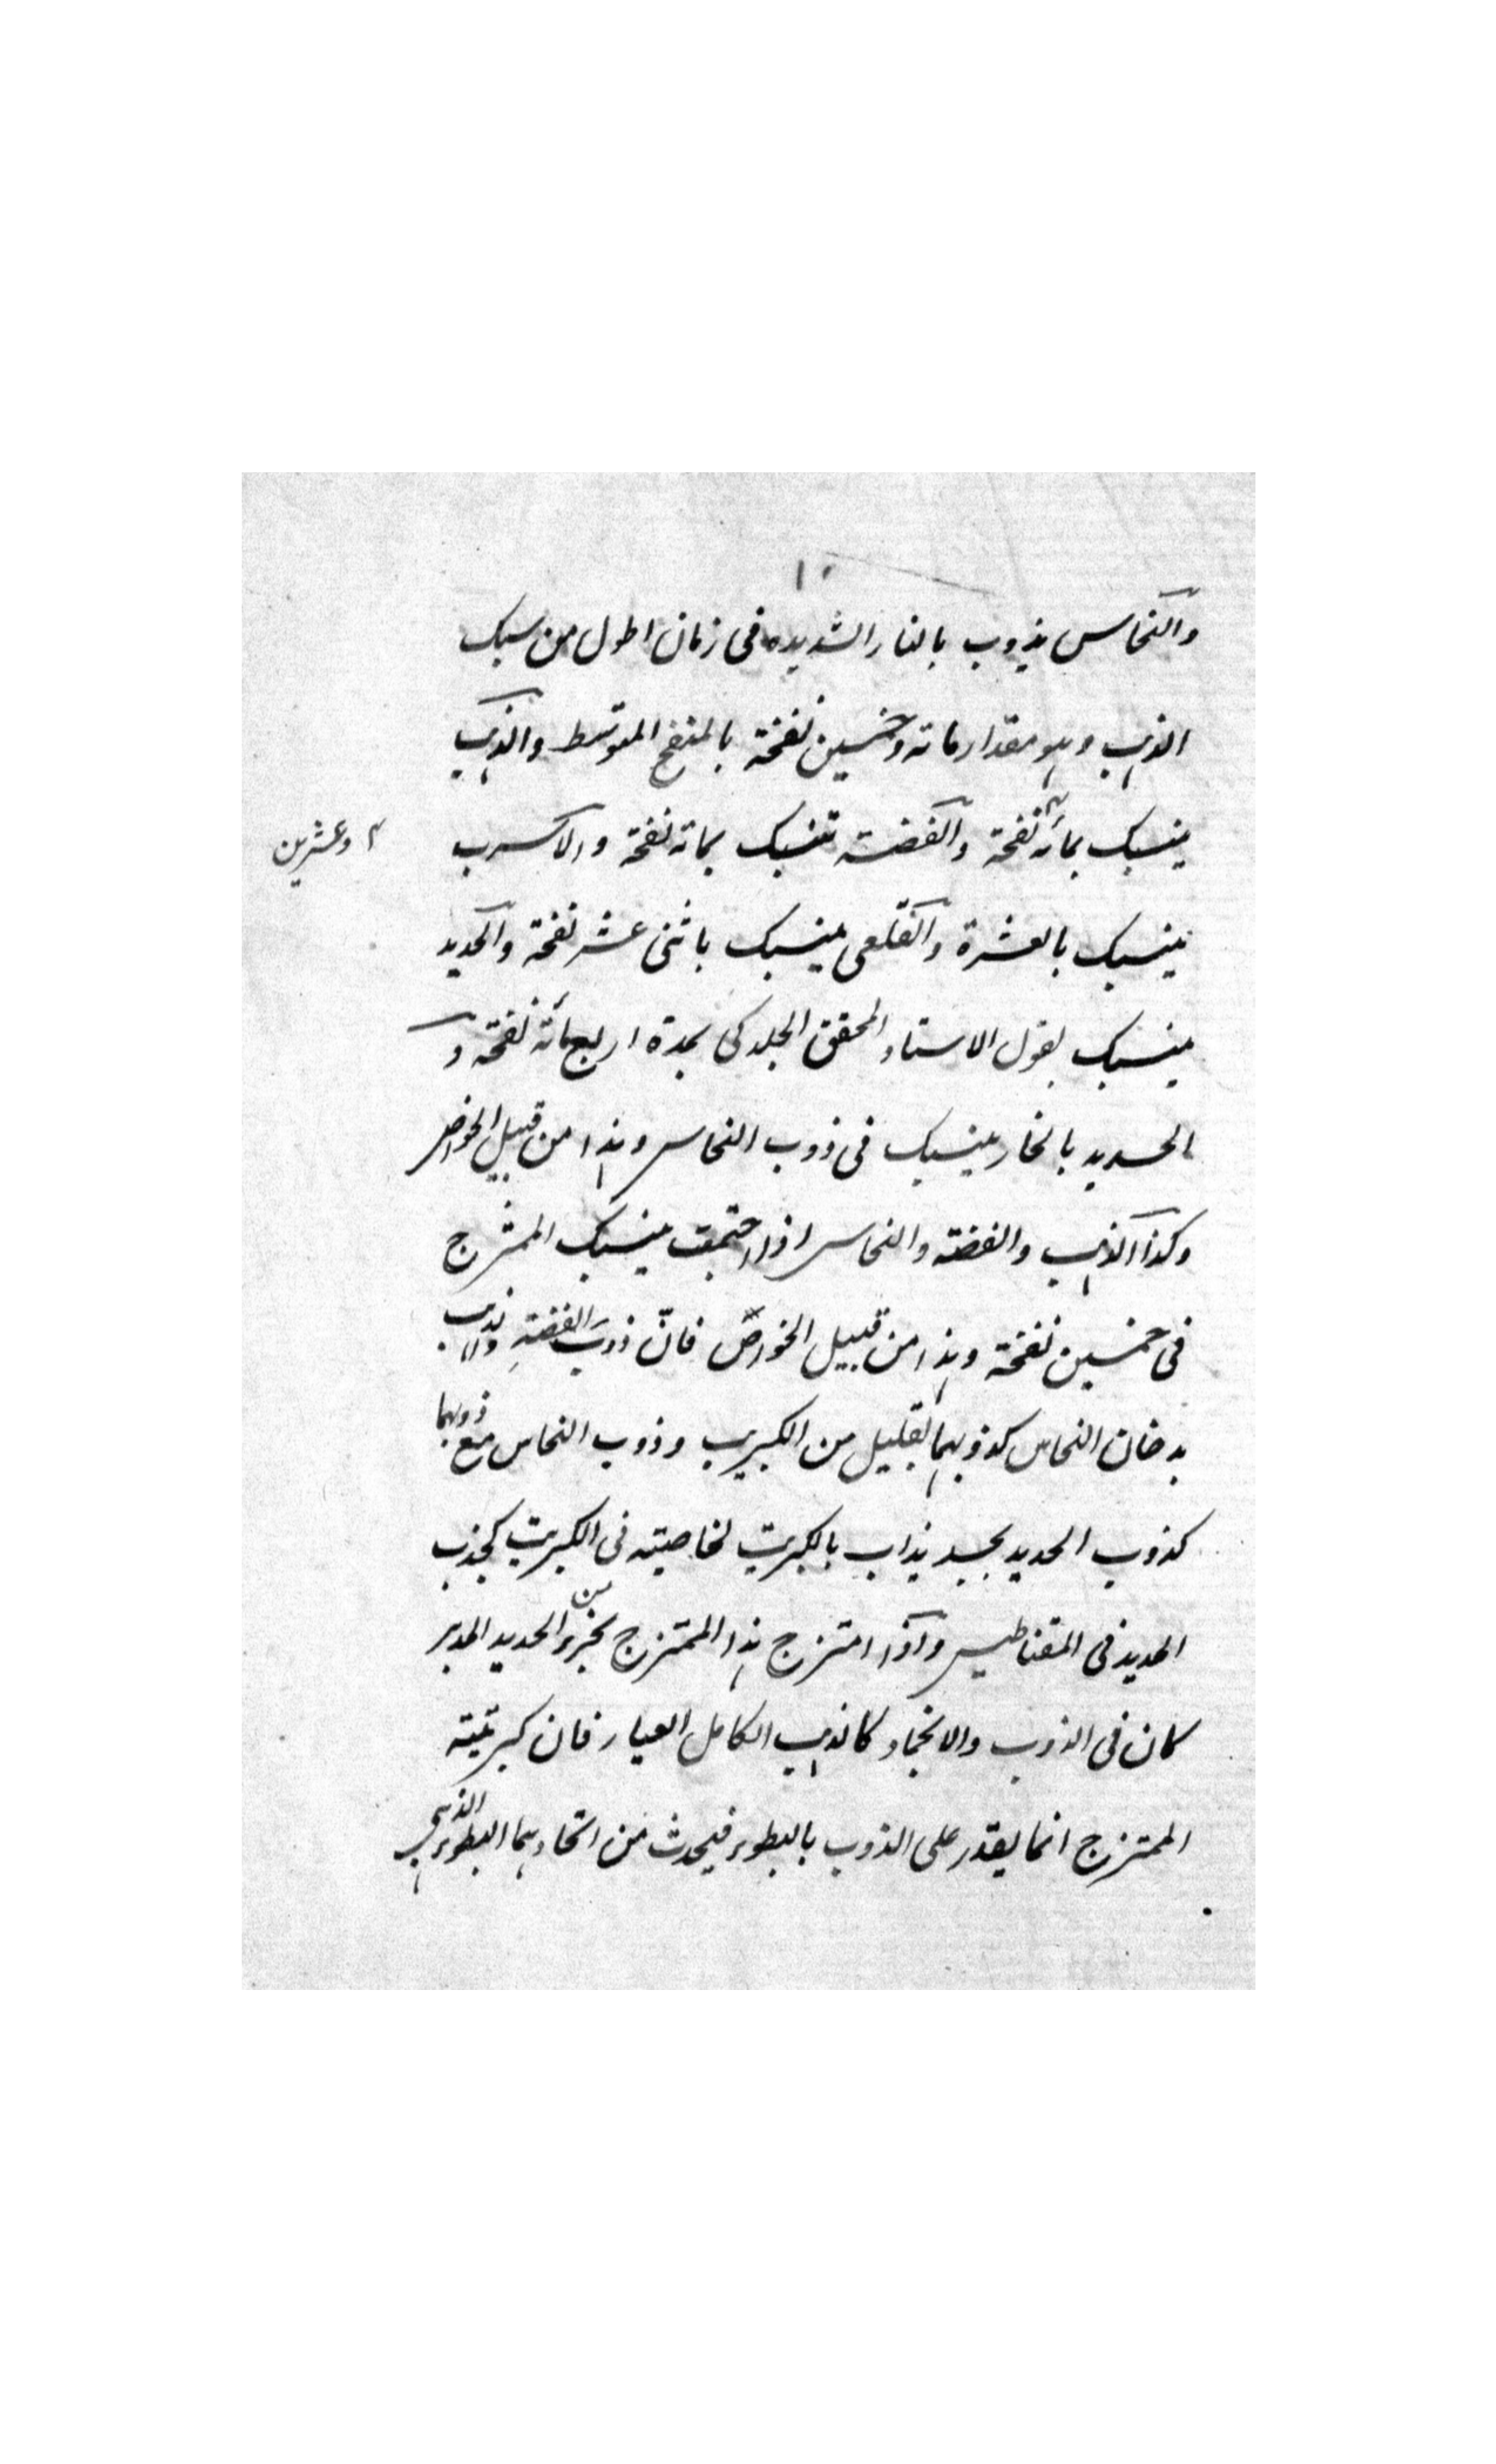 ١٠
والنحاس يذوب بالنار الشديده فى زمان اطول من سبك
الذهب وهو مقدار مائه وخمسين نفخة بالمنفخ المتوسط والذهب
ينسبك بمائة نفخة والفضة تنسبك بمائة نفخة والاسرب
وعشرين
ينسبك بالعشرة والقلعى ينسبك باثنى عشر نفخة والحديد
ينسبك بقول الاستاد المحقق الجلدكى بمدة اربعمائة نفخة و
الحديد بالنحار ينسبك فى ذوب النحاس وهذا من قبيل الخواص
وكذا الذهب والفضة والنحاس اذا اجتمعت ينسبك الممتزج
فى خمسين نفخة وهذا من قبيل الخواص فانّ ذوب الفضةِ والذهب
بدخان النحاس كذوبهما بقليل من الكبريت وذوب النحاس مع ذوبهما
كذوب الحديد بجسد يذاب بالكبريت لخاصيته فى الكبريت كجذب
الحديد فى المقناطيس واذا امتزج هذا الممتزج بجزء من الحديد المدبر
كان فى الذوب والانجماد كالذهب الكامل العيار فان كبريتية
الممتزج انما يقدر على الذوب بالبطوء فيحدث من اتحادهما البطوء الذهبى